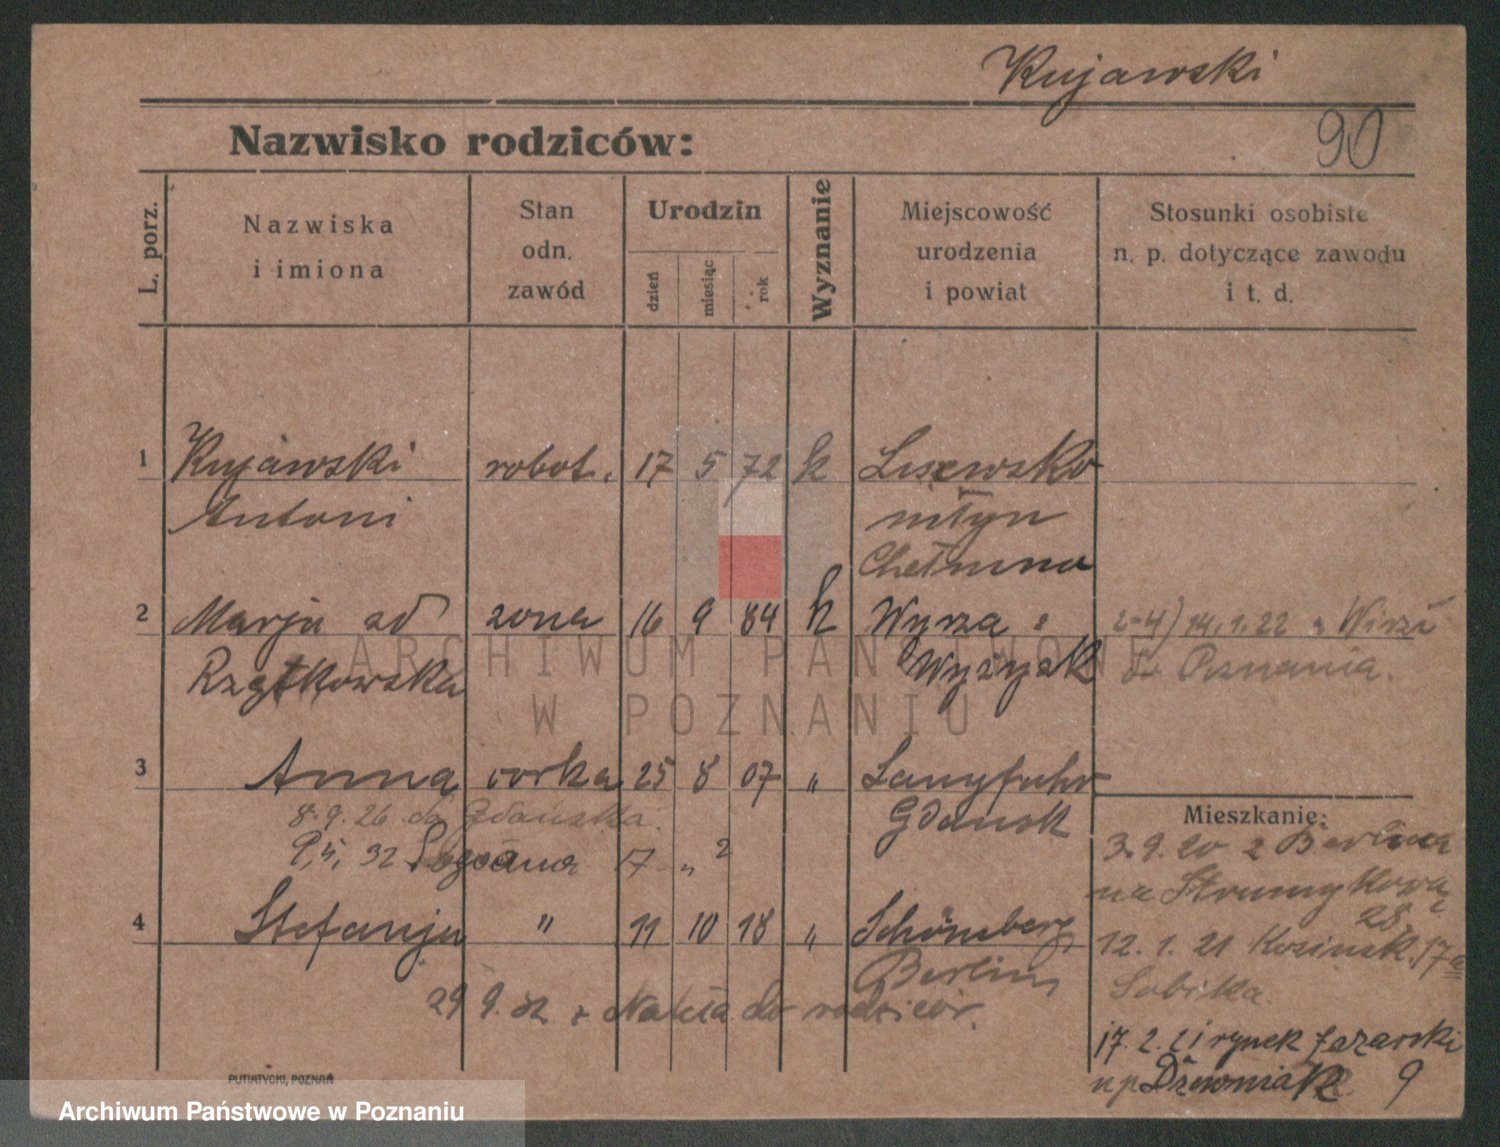 Kujawski
Nazwisko rodziców:
90
L. porz.
Nazwiska
i imiona
Stan
odn.
zawód
Urodzin
dzień
miesiąc
rok
Wyznanie
Miejscowość
urodzenia
i powiat
Stosunki osobiste
n. p. dotyczące zawodu
i t. d.
1 Kujawski robot. 17 5 72 k Lisewsko
Antoni młyn
Chełmno
2 Marja zd żona 16 9 84 k Wyrza
Rzątkowska Wyżysk
2-4) 14.1.22 z
do Poznania.
ARCHIWUM PAŃSTWOWE
W POZNANIU
3 Anna córka 25 8 07 " Langfuhr
8.9.26 do Gdańska. Gdansk
9.5.32 17
4 Stefanja " 11 10 18 " Schöneberg
Berlin
29 9. 32 z do rodziców.
Mieszkanie:
3.9.20 z Berlina
na Strumykową
28
12. 1. 21 Kosinsk. 17a
Sobilka.
17. 2. 21 rynek Łazarski 9
np Dzewniak
PUTIATYCKI, POZNAŃ
Archiwum Państwowe w Poznaniu